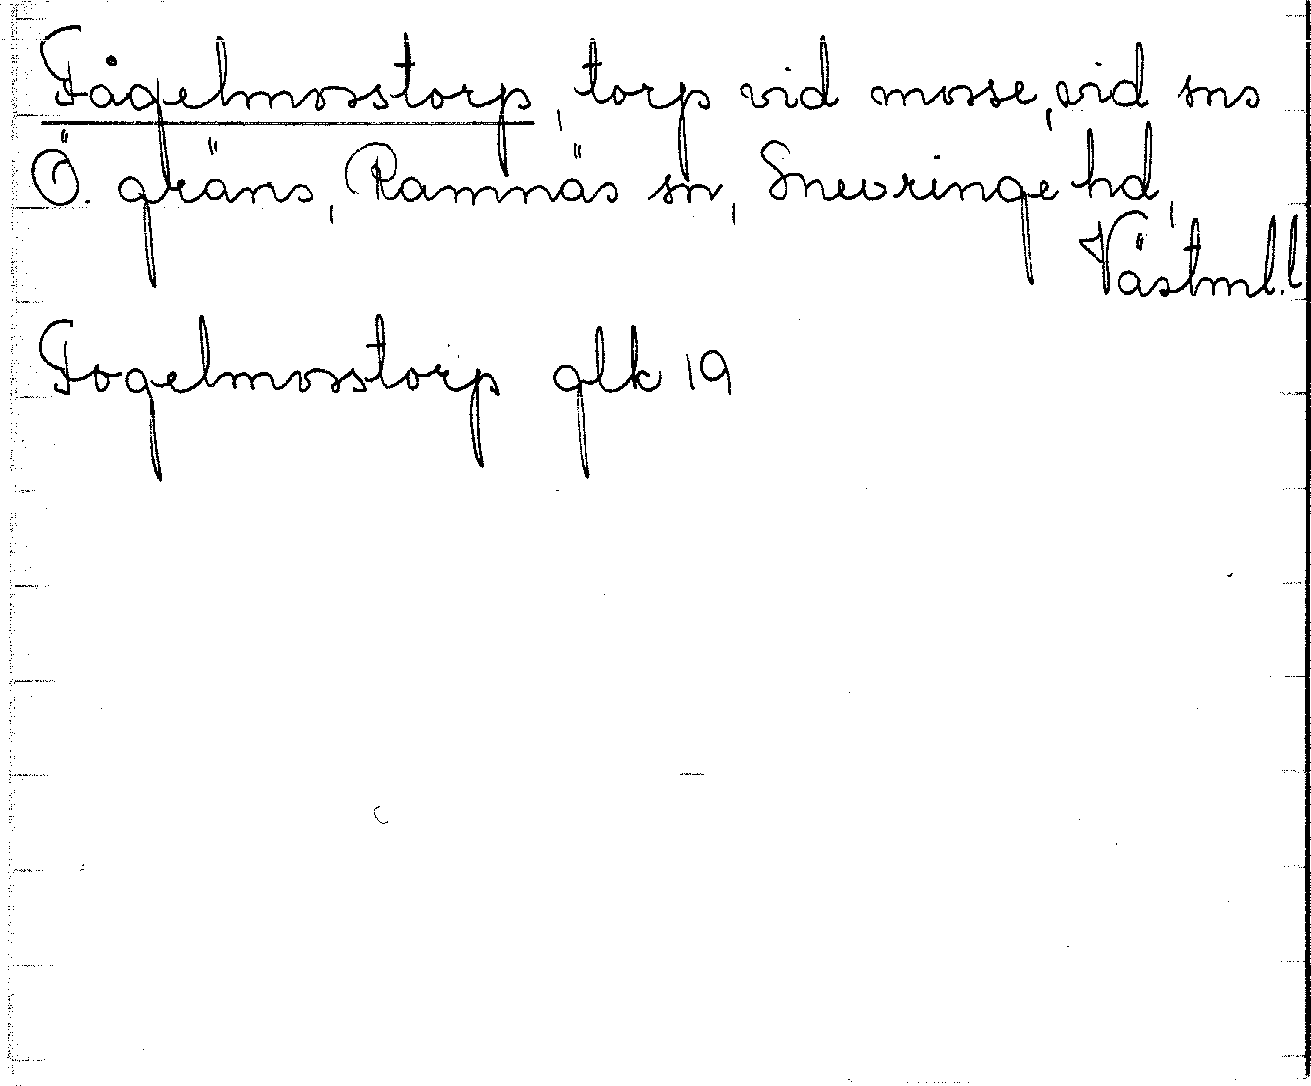 Fågelmosstorp, torp vid mosse, vid sns
Ö. gräns, Ramnäs sn, Snevringe hd,
Västml. l
Fogelmosstorp glk 19